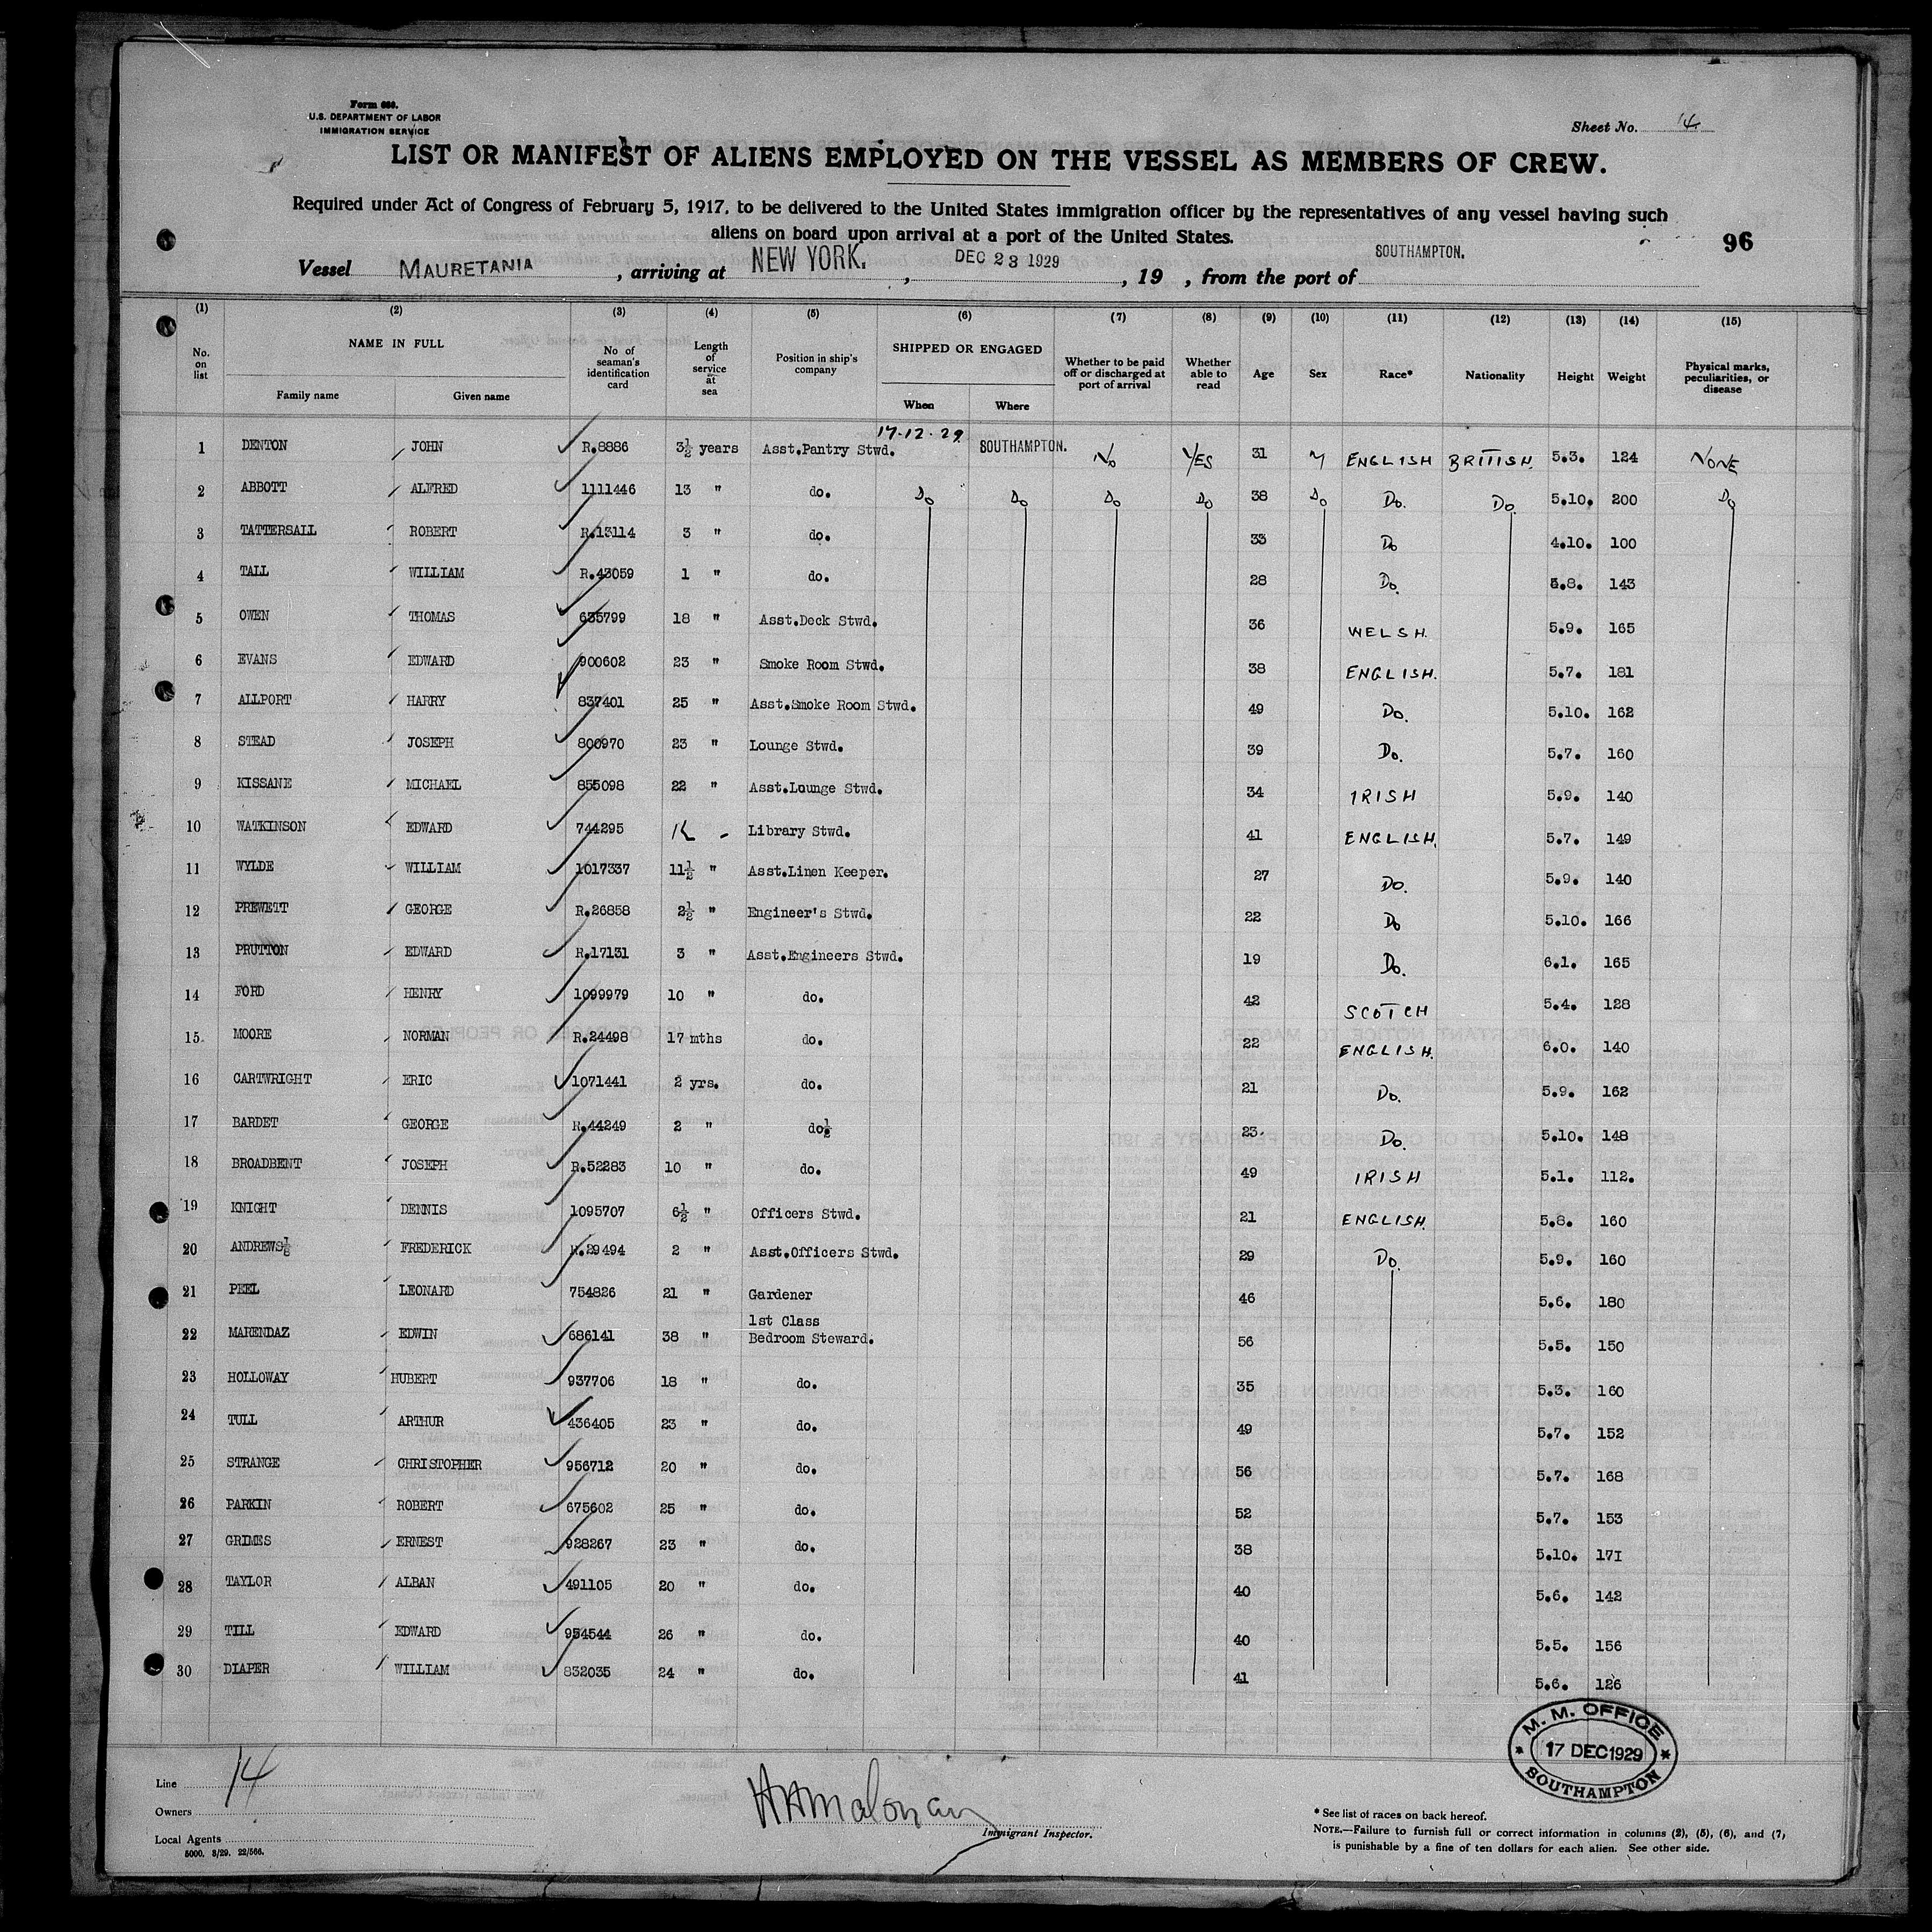 Form 686.
U.S. DEPARTMENT OF LABOR
IMMIGRATION SERVICE
Sheet No. 14
LIST OR MANIFEST OF ALIENS EMPLOYED ON THE VESSEL AS MEMBERS OF CREW.
Required under Act of Congress of February 5, 1917, to be delivered to the United States immigration officer by the representatives of any vessel having such
aliens on board upon arrival at a port of the United States.
96
Vessel MAURETANIA, arriving at NEW YORK., DEC 23 1929, 19 , from the port of SOUTHAMPTON.
(1) (2) (3) (4) (5) (6) (7) (8) (9) (10) (11) (12) (13) (14) (15)
No. on list NAME IN FULL Family name Given name No of seaman's identification card Length of service at sea Position in ship's company SHIPPED OR ENGAGED When Where Whether to be paid off or discharged at port of arrival Whether able to read Age Sex Race* Nationality Height Weight Physical marks, peculiarities, or disease
1 DENTON JOHN R.8886 3½ years Asst.Pantry Stwd. 17-12-29 SOUTHAMPTON. No YES 31 M ENGLISH BRITISH. 5.3. 124 NONE
2 ABBOTT ALFRED 1111446 13 " do. Do Do Do Do 38 Do Do. Do. 5.10. 200 Do
3 TATTERSALL ROBERT R.13114 3 " do. 33 Do 4.10. 100
4 TALL WILLIAM R.43059 1 " do. 28 Do. 5.8. 143
5 OWEN THOMAS 635799 18 " Asst.Deck Stwd. 36 WELSH. 5.9. 165
6 EVANS EDWARD 900602 23 " Smoke Room Stwd. 38 ENGLISH. 5.7. 181
7 ALLPORT HARRY 837401 25 " Asst.Smoke Room Stwd. 49 Do. 5.10. 162
8 STEAD JOSEPH 800970 23 " Lounge Stwd. 39 Do. 5.7. 160
9 KISSANE MICHAEL 855098 22 " Asst.Lounge Stwd. 34 IRISH 5.9. 140
10 WATKINSON EDWARD 744295 Library Stwd. 41 ENGLISH. 5.7. 149
11 WYLDE WILLIAM 1017337 11½ " Asst.Linen Keeper. 27 Do. 5.9. 140
12 PREWETT GEORGE R.26858 2½ " Engineer's Stwd. 22 Do 5.10. 166
13 PRUTTON EDWARD R.17131 3 " Asst.Engineers Stwd. 19 Do. 6.1. 165
14 FORD HENRY 1099979 10 " do. 42 SCOTCH 5.4. 128
15. MOORE NORMAN R.24498 17 mths do. 22 ENGLISH. 6.0. 140
16 CARTWRIGHT ERIC 1071441 2 yrs. do. 21 Do. 5.9. 162
17 BARDET GEORGE R.44249 2 " do½ 23. Do. 5.10. 148
18 BROADBENT JOSEPH R.52283 10 " do. 49 IRISH 5.1. 112.
19 KNIGHT DENNIS 1095707 6½ " Officers Stwd. 21 ENGLISH. 5.8. 160
20 ANDREWS FREDERICK R.29494 2 " Asst.Officers Stwd. 29 Do. 5.9. 160
21 PEEL LEONARD 754826 21 " Gardener 46 5.6. 180
22 MARENDAZ EDWIN 686141 38 " 1st Class Bedroom Steward. 56 5.5. 150
23 HOLLOWAY HUBERT 937706 18 " do. 35 5.3. 160
24 TULL ARTHUR 436405 23 " do. 49 5.7. 152
25 STRANGE CHRISTOPHER 956712 20 " do. 56 5.7. 168
26 PARKIN ROBERT 675602 25 " do. 52 5.7. 153
27 GRIMES ERNEST 928267 23 " do. 38 5.10. 17I
28 TAYLOR ALBAN 491105 20 " do. 40 5.6. 142
29 TILL EDWARD 954544 26 " do. 40 5.5. 156
30 DIAPER WILLIAM 832035 24 " do. 41 5.6. 126
M. M. OFFICE
17 DEC 1929
SOUTHAMPTON
Line 14
Owners
Local Agents
5000. 8/29. 22/566.
Immigrant Inspector.
* See list of races on back hereof.
NOTE.—Failure to furnish full or correct information in columns (2), (5), (6), and (7,
is punishable by a fine of ten dollars for each alien. See other side.